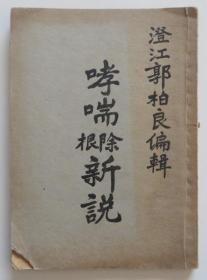 澄江郭柏良偏輯
哮喘除根新説